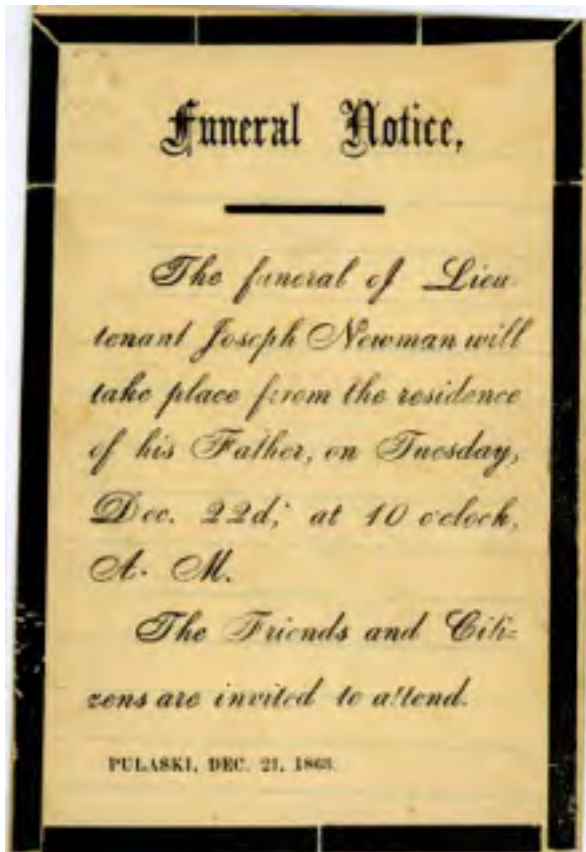 Funeral Notice,
The funeral of Lieu-
tenant Joseph Newman will
take place from the residence
of his Father, on Tuesday,
Dec. 22d, at 10 o'clock,
A. M.
The Friends and Citi-
zens are invited to attend.
PULASKI, DEC. 21, 1863.